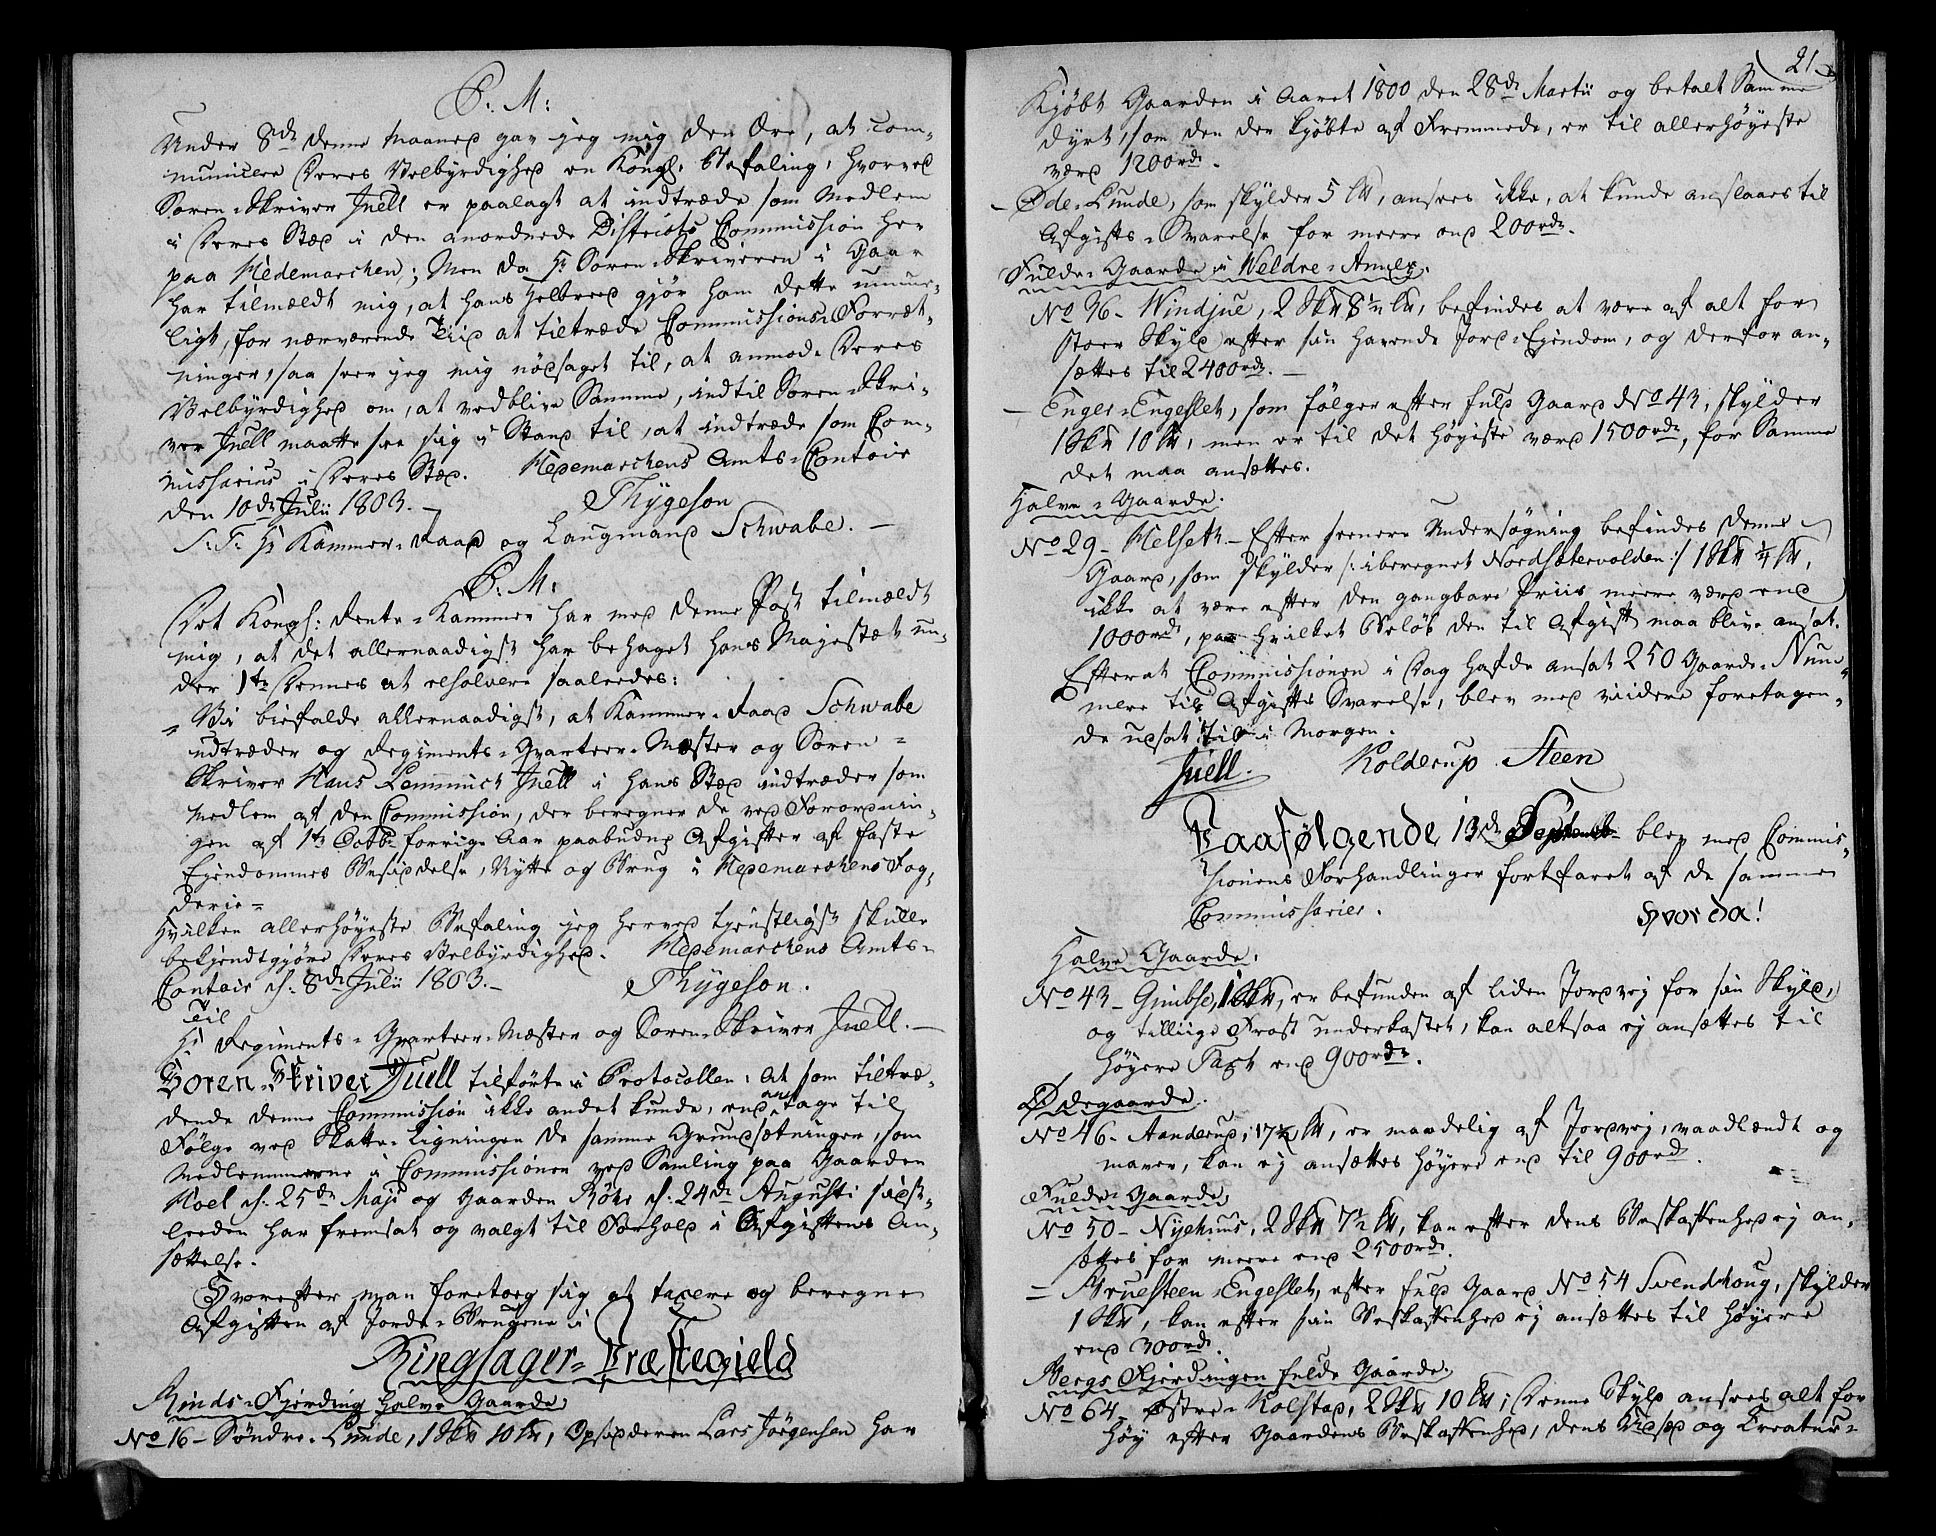 P. M:
Under 8de denne Maaned gav jeg mig den Ære, at com-
municere Deres Velbyrdighed en Kongl. Befaling, hvorved
Soren-Skriver Juell er paalagt at indtræde som Medlem
i Deres Stæd i den anordnede Districts Commission her
paa Hedemarchen; Men da Hr Soren-Skriveren i Gaar
har tilmældt mig, at hans Helbred gjør ham dette umue-
ligt, for nærværende Tiid at tiltræde Commissions-Forret-
ninger, saa seer jeg mig nødsaget til, at anmode Deres
Velbyrdighed om, at vedblive Samme, indtil Soren-Skri-
ver Juell maatte see sig i Stand til, at indtræde som Com-
missarius i Deres Stæd. Hedemarchens Amts-Contoir
den 10de Julii 1803.
Thygeson
S. T. Hr Kammer-Raad og Laugmand Schwabe. —
P. M:
Det Kongl: Rente-Kammer har med denne Post tilmældt
mig, at det allernaadigst har behaget Hans Majestæt un-
der 1te Dennes at resolvere saaledes:
"Vi biefalde allernaadigst, at Kammer-Raad Schwabe
udtræder og Regiments-Qvarteer-Mæster og Soren-
Skriver Hans Lemmich Juell i hans Stæd indtræder som
Medlem af den Commission, der beregner de ved Forordnin-
gen af 1te Octbr forrige Aar paabudne Afgifter af faste
Ejendommes Besiddelse, Nytte og Brug i Hedemarchens Fog-
derie=
Hvilken allerhøyeste Befaling jeg herved tjenstligst skulle
bekjendtgjøre Deres Velbyrdighed. Hedemarchens Amts-
Contoir d. 8de Julii 1803.—
Thygeson.
Til
Hr Regiments-Qvarteer-Mæster og Soren-Skriver Juell. —
Soren-Skriver Juell tilførte i Protocollen: At som tiltræ-
dende denne Commission ikke andet kunde, end antage til
Følge ved Skatte-Ligningen de samme Grundsætninger, som
Medlemmerne i Commissionen ved Samling paa Gaarden
Hoel d. 25de Maji og Gaarden Røhr d. 24de Augusti sidst-
leeden har fremsat og valgt til Forhold i Afgiftens An-
sættelse.
Hvorefter man foretoeg sig at taxere og beregne
Afgiften af Jorde-Brugene i
Ringsager-Præstegield
Rinds-Fjerding halve Gaarde,
No 16 – Søndre-Lunde, 1 Skp 10 lb, Opsidderen Lars Jörgensen har
21
Kjøbt Gaarden i Aaret 1800 den 28de Martii og betalt Samme
dyrt, som den der kjøbte af Fremmede, er til allerhøyeste
værd 1200rdr.
– Øde-Lunde, som skylder 5 lb, ansees ikke, at kunde anslaaes til
Afgifts-Svarelse for meere end 200rdr.
Fulde-Gaarde i Weldre-Annex.
No 96 – Windjue, 2 Skp 8½ lb, befindes at være af alt for
stoer Skyld efter sin havende Jord-Ejendom, og derfor an-
sættes til 2400rdr. —
— Enger-Engeslet, som følger efter fuld Gaard No 43, skylder
1 Skp 10 lb, men er til det høyeste værd 1500rdr, for Samme
det maa ansættes.
Halve-Gaarde.
No 29 – Helseth – Efter seenere Undersøgning befindes denne
Gaard, som skylder /: iberegnet Nordsetervolden :/ 1 Skp ¼ lb,
ikke at være efter den gangbare Priis meere værd end
1000rdr, paa hvilket Beløb den til Afgift maa blive ansat.
Efterat Commissionen i Dag hafde ansat 250 Gaarde-Num-
mere til Afgifts Svarelse, blev med viidere foretagen-
de udsat til i Morgen.
Juell. Holderup Steen
Paafølgende 13de Septemb blev med Commis-
sionens Forhandlinger fortfaret af de samme
Commissarier.
Hvor da!
Halve Gaarde.
No 43 – Gimbse, 1 Skp, er befunden af liden Jordvej for sin Skyld,
og tilliige Frost underkastet, kan altsaa ej ansættes til
høyere Taxt end 900rdr.
Ødegaarde.
No 46 – Aanderud, 17½ lb, er maadelig af Jordvej, vaadlændt og
mager, kan ej ansættes høyere end til 900rdr.
Fulde-Gaarde,
No 50 – Nyehuus, 2 Skp 7½ lb, kan efter dens Beskaffenhed ej an-
sættes for meere end 2500rdr.
— Bruesteen-Engeslet, efter fuld Gaard No 54 Svendhoug, skylder
1 Skp, kan efter sin Beskaffenhed ej ansættes til høyere
end 300rdr.
Bergs Fjerdingen fulde Gaarde.
No 64 Østre-Kolstad, 2 Skp 10 lb; Denne Skyld ansees alt for
høy efter Gaardens Beskaffenhed, dens Udsæd og Creatur-